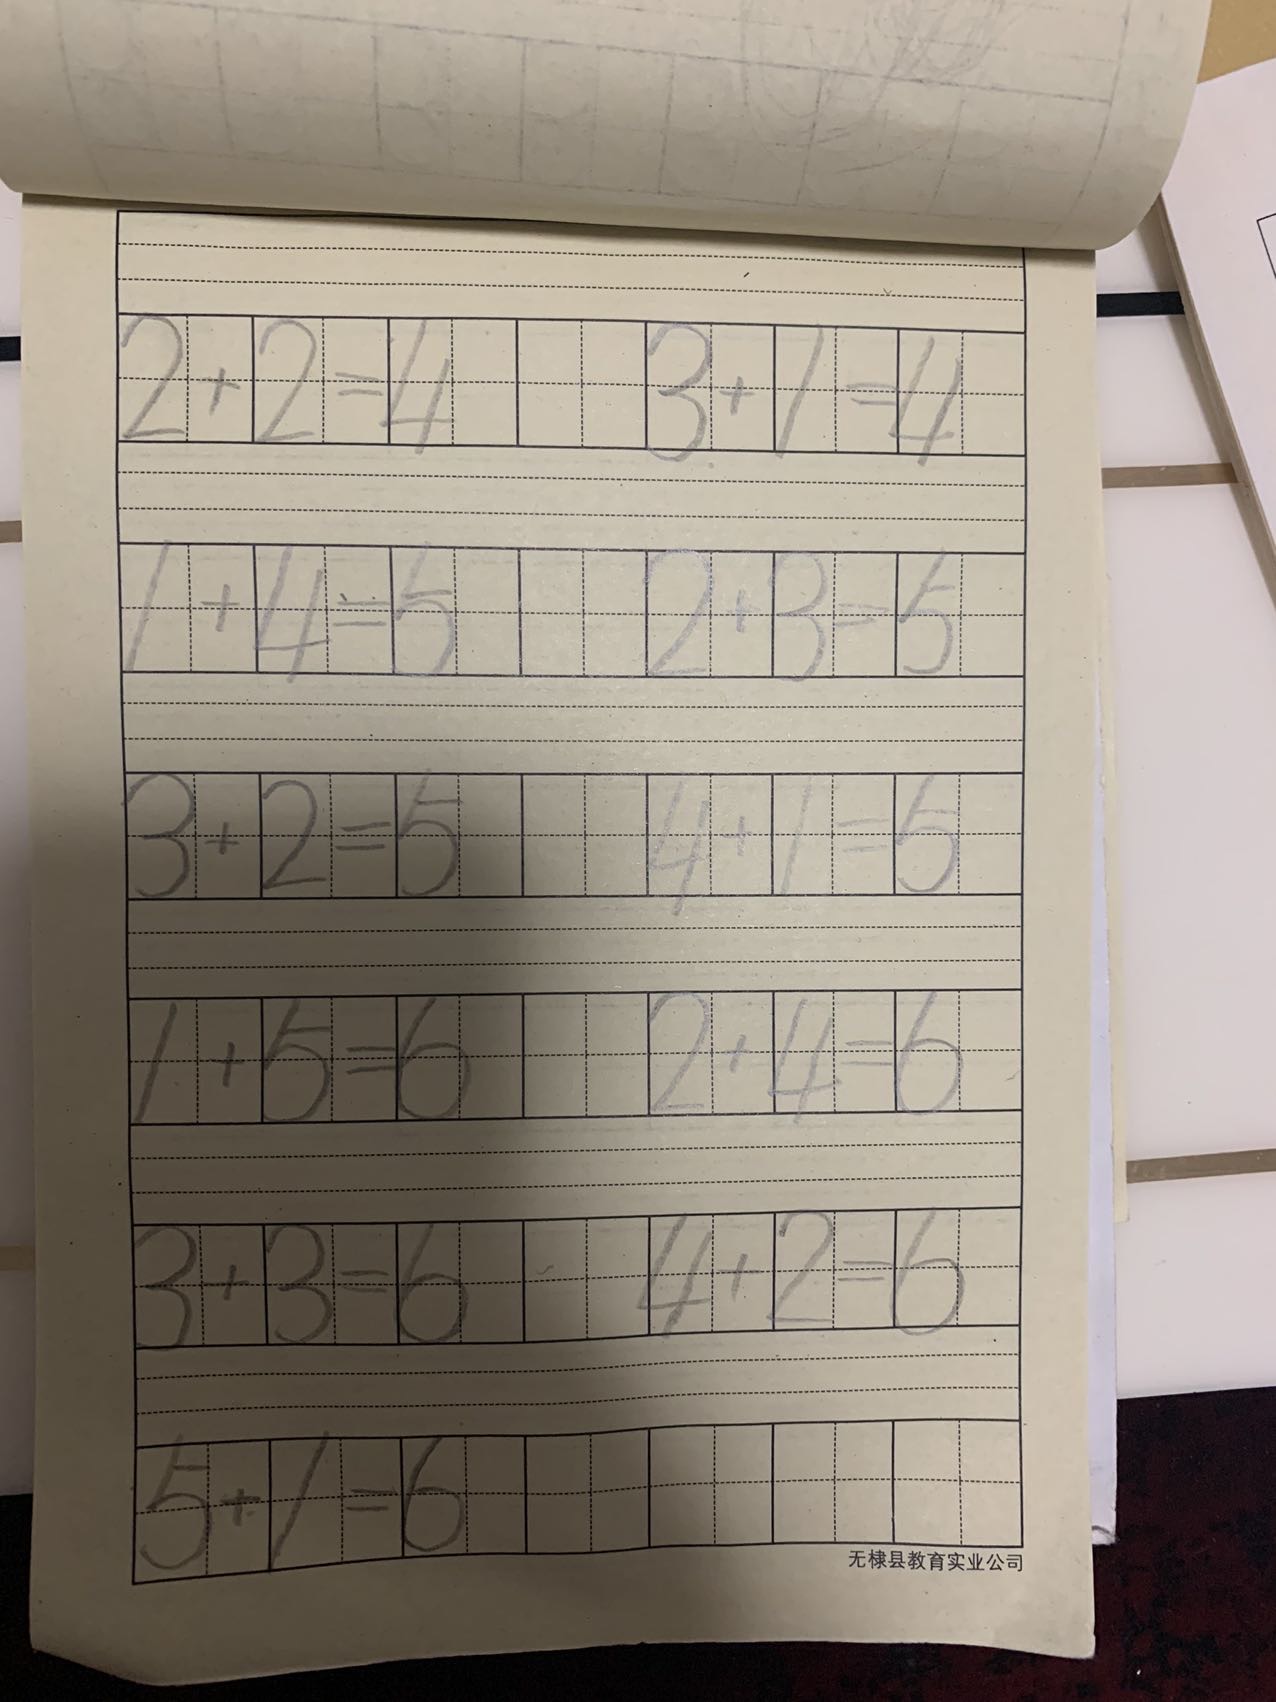 2+2=4 3+1=4
1+4=5 2+3=5
3+2=5 4+1=5
1+5=6 2+4=6
3+3=6 4+2=6
5+1=6
无棣县教育实业公司